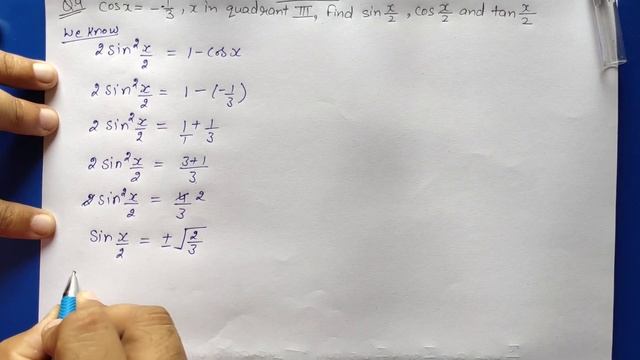 Q9 cos x = -1/3, x in quadrant III, find sin x/2, cos x/2 and tan x/2
We know
2 sin² x/2 = 1 - cos x
2 sin² x/2 = 1 - (-1/3)
2 sin² x/2 = 1/1 + 1/3
2 sin² x/2 = 3+1/3
2 sin² x/2 = 4/3 2
Sin x/2 = ± √2/3